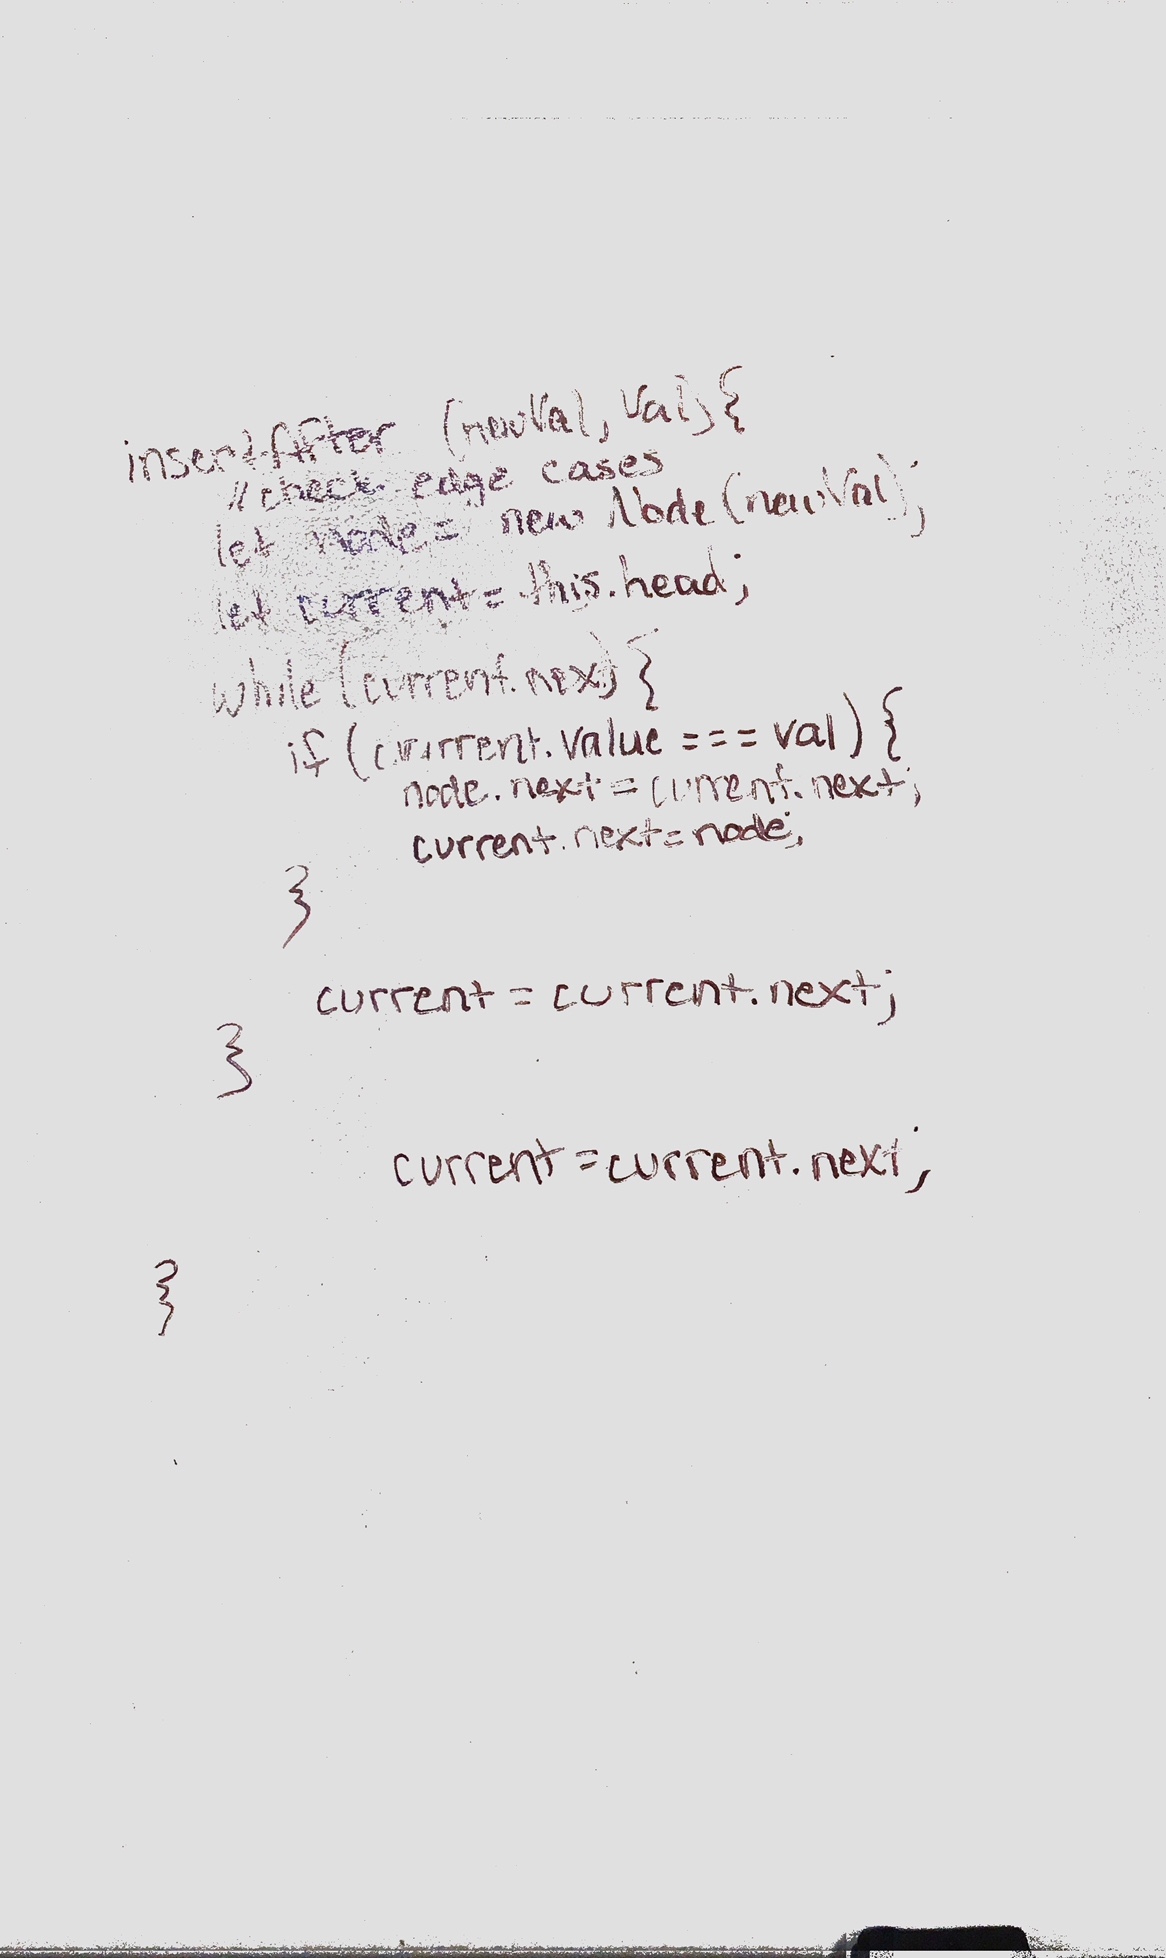 insertAfter (newVal, val) {
// check edge cases
let node = new Node (newVal);
let current = this.head;
while (current.next) {
if (current.value === val) {
node.next = current.next;
current.next = node;
}
current = current.next;
}
current = current.next;
}